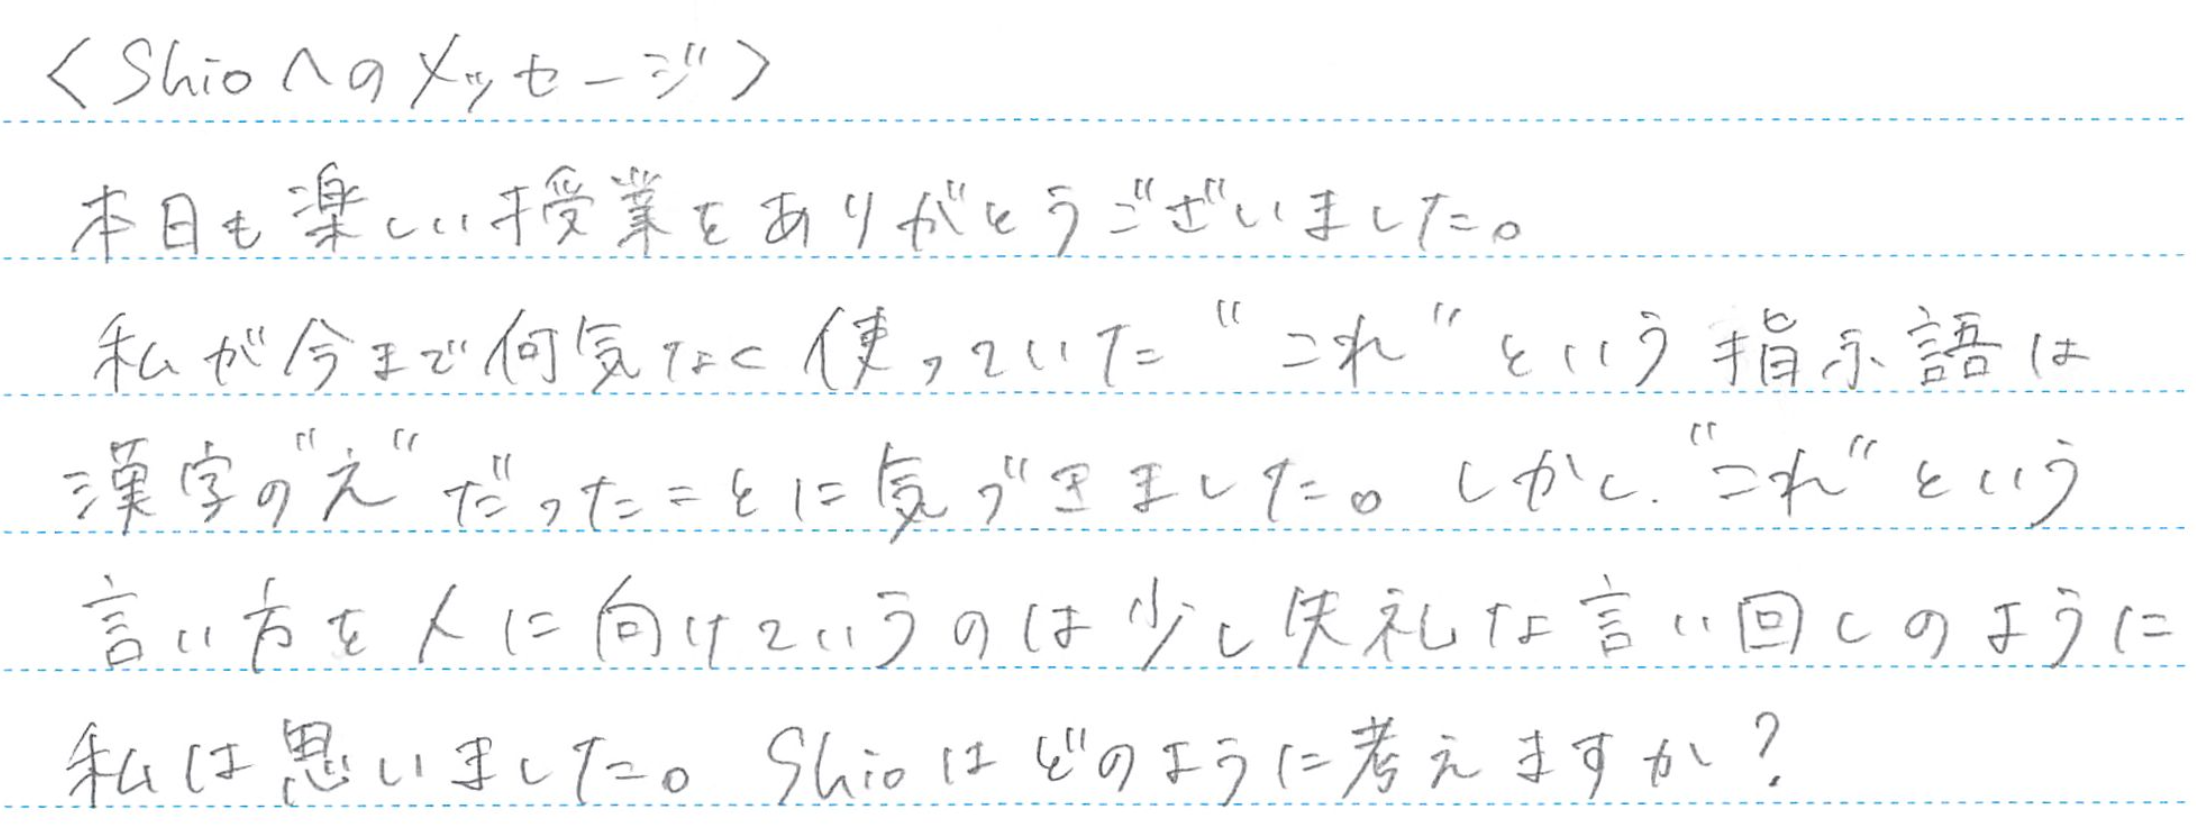 <Shioへのメッセージ>
本日も楽しい授業をありがとうございました。
私が今まで何気なく使っていた"これ"という指示語は
漢字の"え"だったことに気づきました。しかし、"これ"という
言い方を人に向けていうのは少し失礼な言い回しのように
私は思いました。Shioはどのように考えますか?